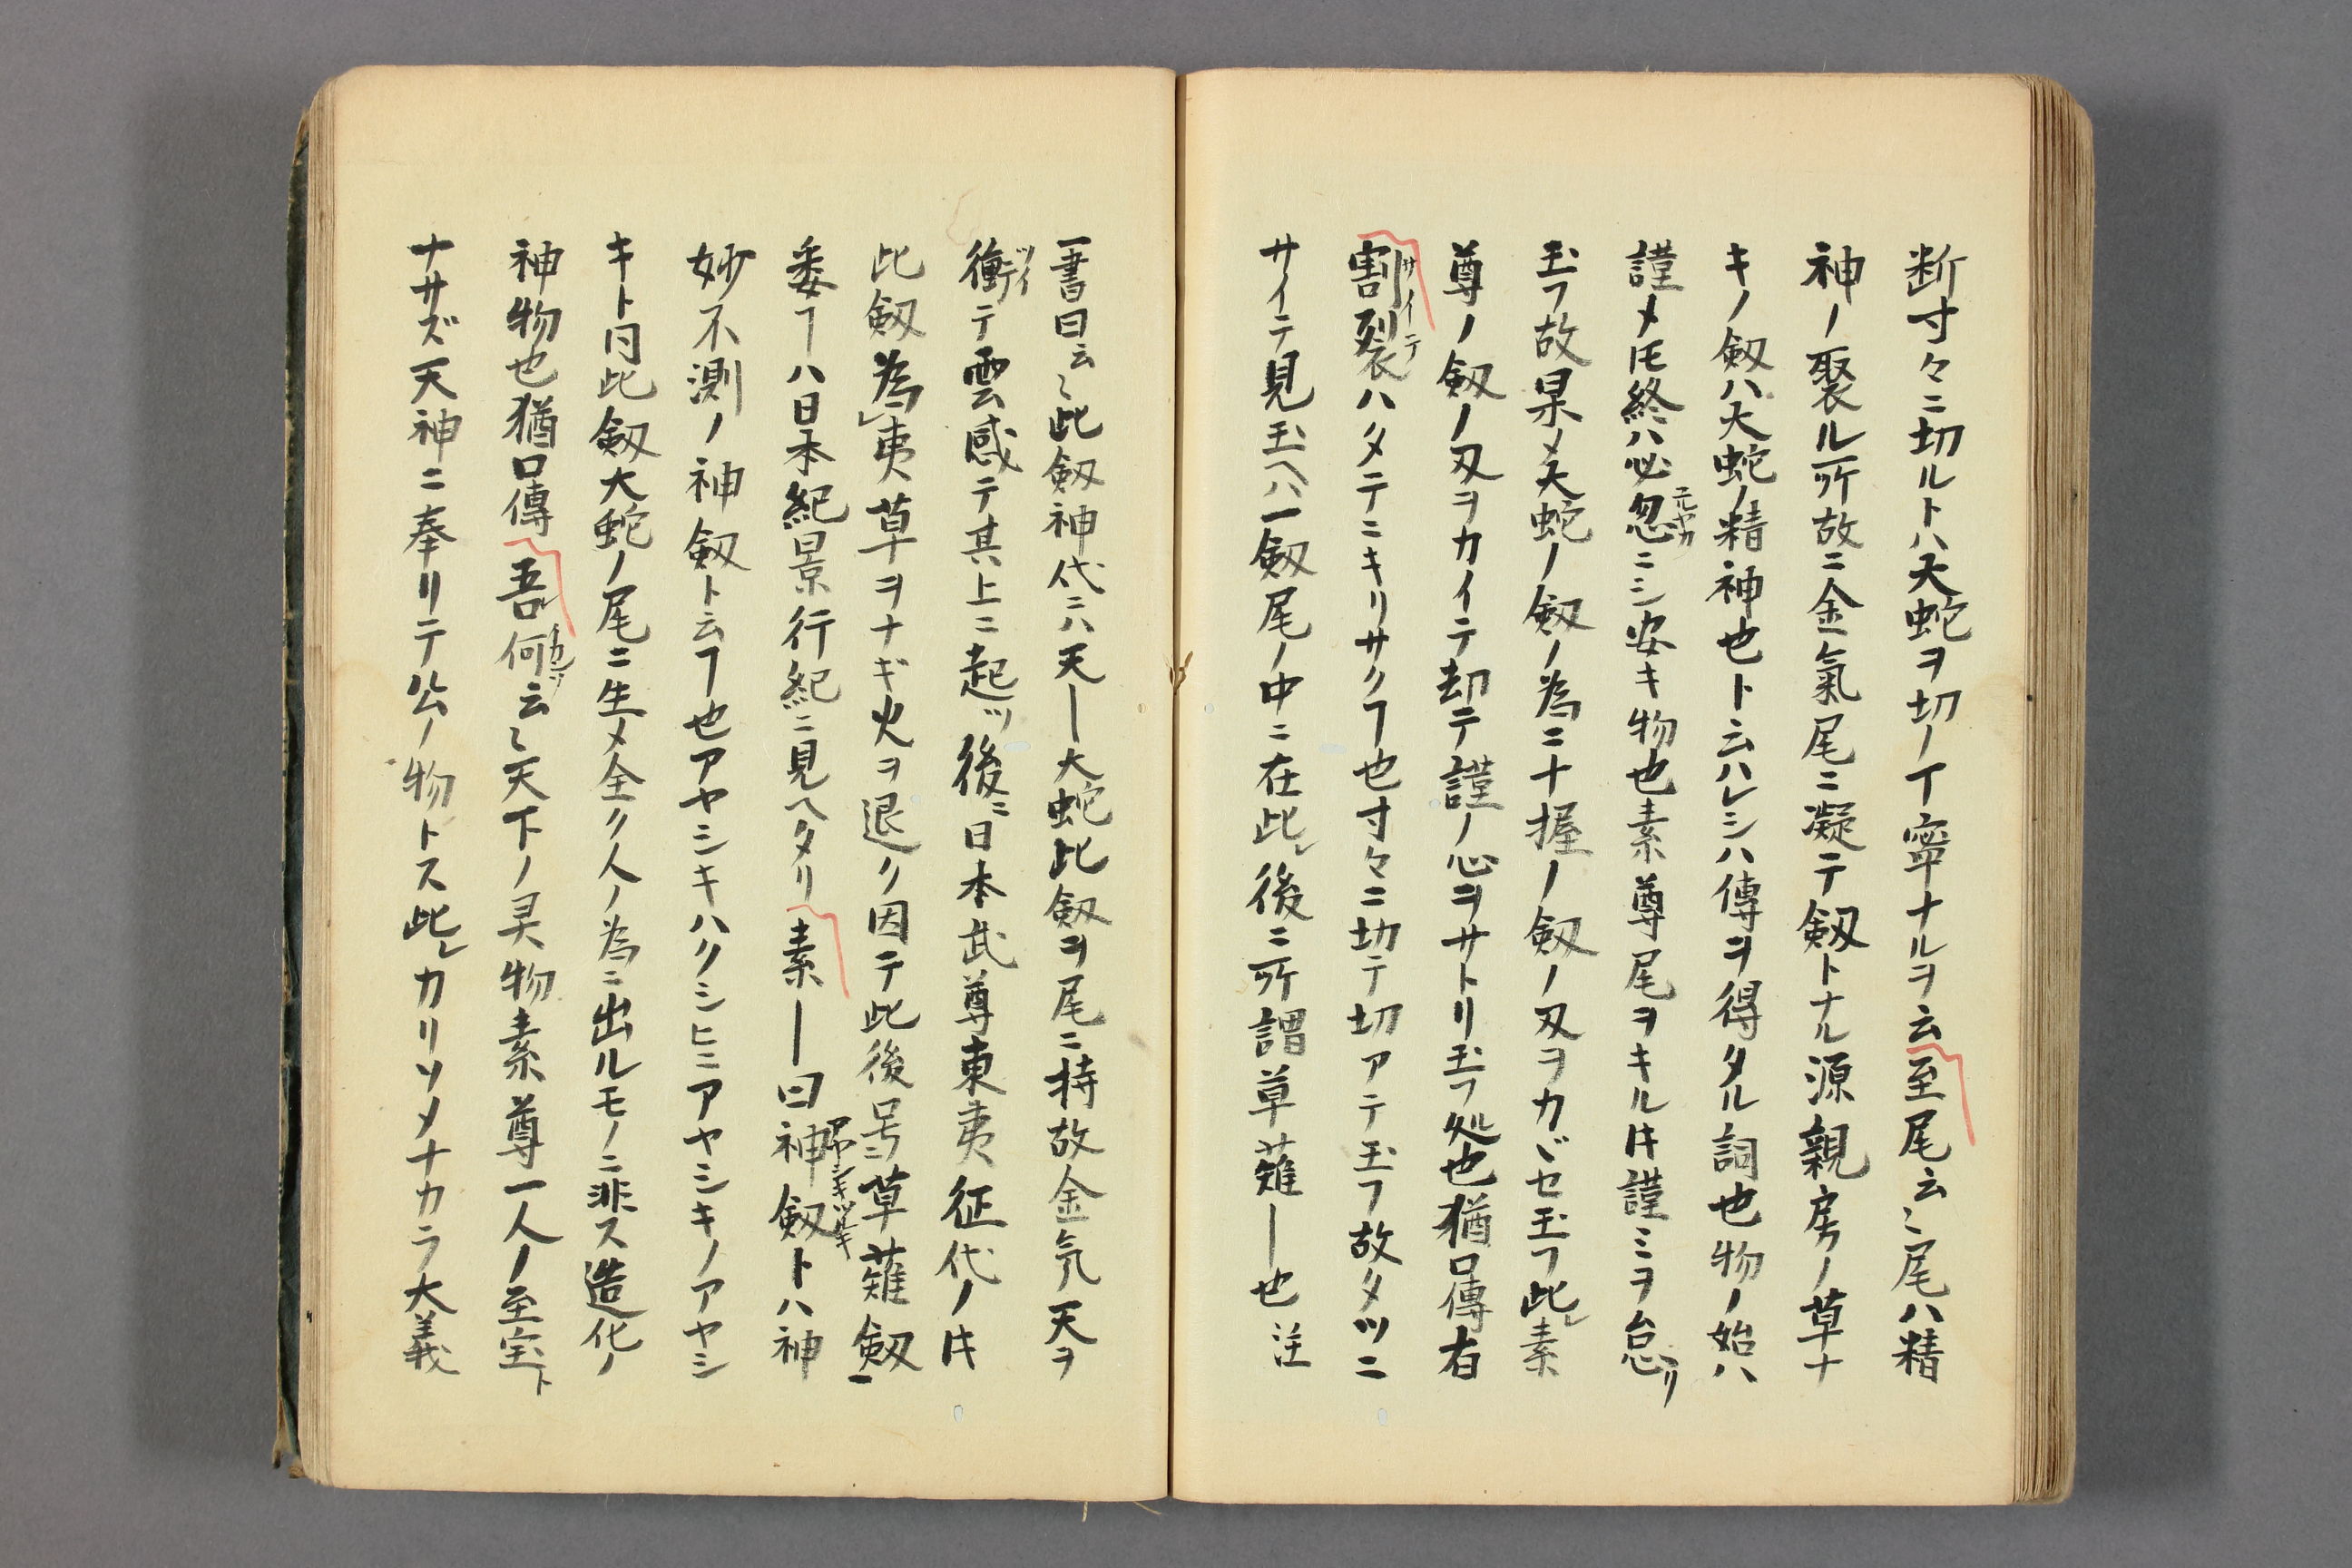 断寸々ニ切ルトハ大蛇ヲ切ノ丁寧ナルヲ云至尾云〻尾ハ精
神ノ聚ル所故ニ金氣尾ニ凝テ釼トナル源親房ノ草ナ
キノ釼ハ大蛇ノ精神也ト云ハレシハ傳ヲ得タル詞也物ノ始ハ
謹メ𪜈終ハ必忽ニシ安キ物也素尊尾ヲキル片謹ミヲ怠リ
玉フ故果メ大蛇ノ釼ノ為ニ十握ノ釼ノ刄ヲカヾセ玉フ此レ素
尊ノ釼ノ刄ヲカイテ却テ謹ノ心ヲサトリ玉フ処也猶口傳右
割裂ハタテニキリサクヿ也寸々ニ切テ切アテ玉フ故タツニ
サイテ見玉ヘハ一釼尾ノ中ニ在此レ後ニ所謂草薙―也 注
一書曰云〻此釼神代ニハ天―大蛇此釼ヲ尾ニ持故金气天ヲ
衝テ雲感テ其上ニ起ッ後ニ日本武尊東夷征代ノ片
此釼為夷草ヲナギ火ヲ退ク因テ此後号草薙釼
委ヿハ日本紀景行紀ニ見ヘタリ素―曰神釼トハ神
妙不測ノ神釼ト云ヿ也アヤシキハクシヒニアヤシキノアヤシ
キト同此釼大蛇ノ尾ニ生メ全ク人ノ為ニ出ルモノニ非ス造化ノ
神物也猶口傳吾何云〻天下ノ灵物素尊一人ノ至宝ト
ナサズ天神ニ奉リテ公ノ物トス此レカリソメナカラ大義